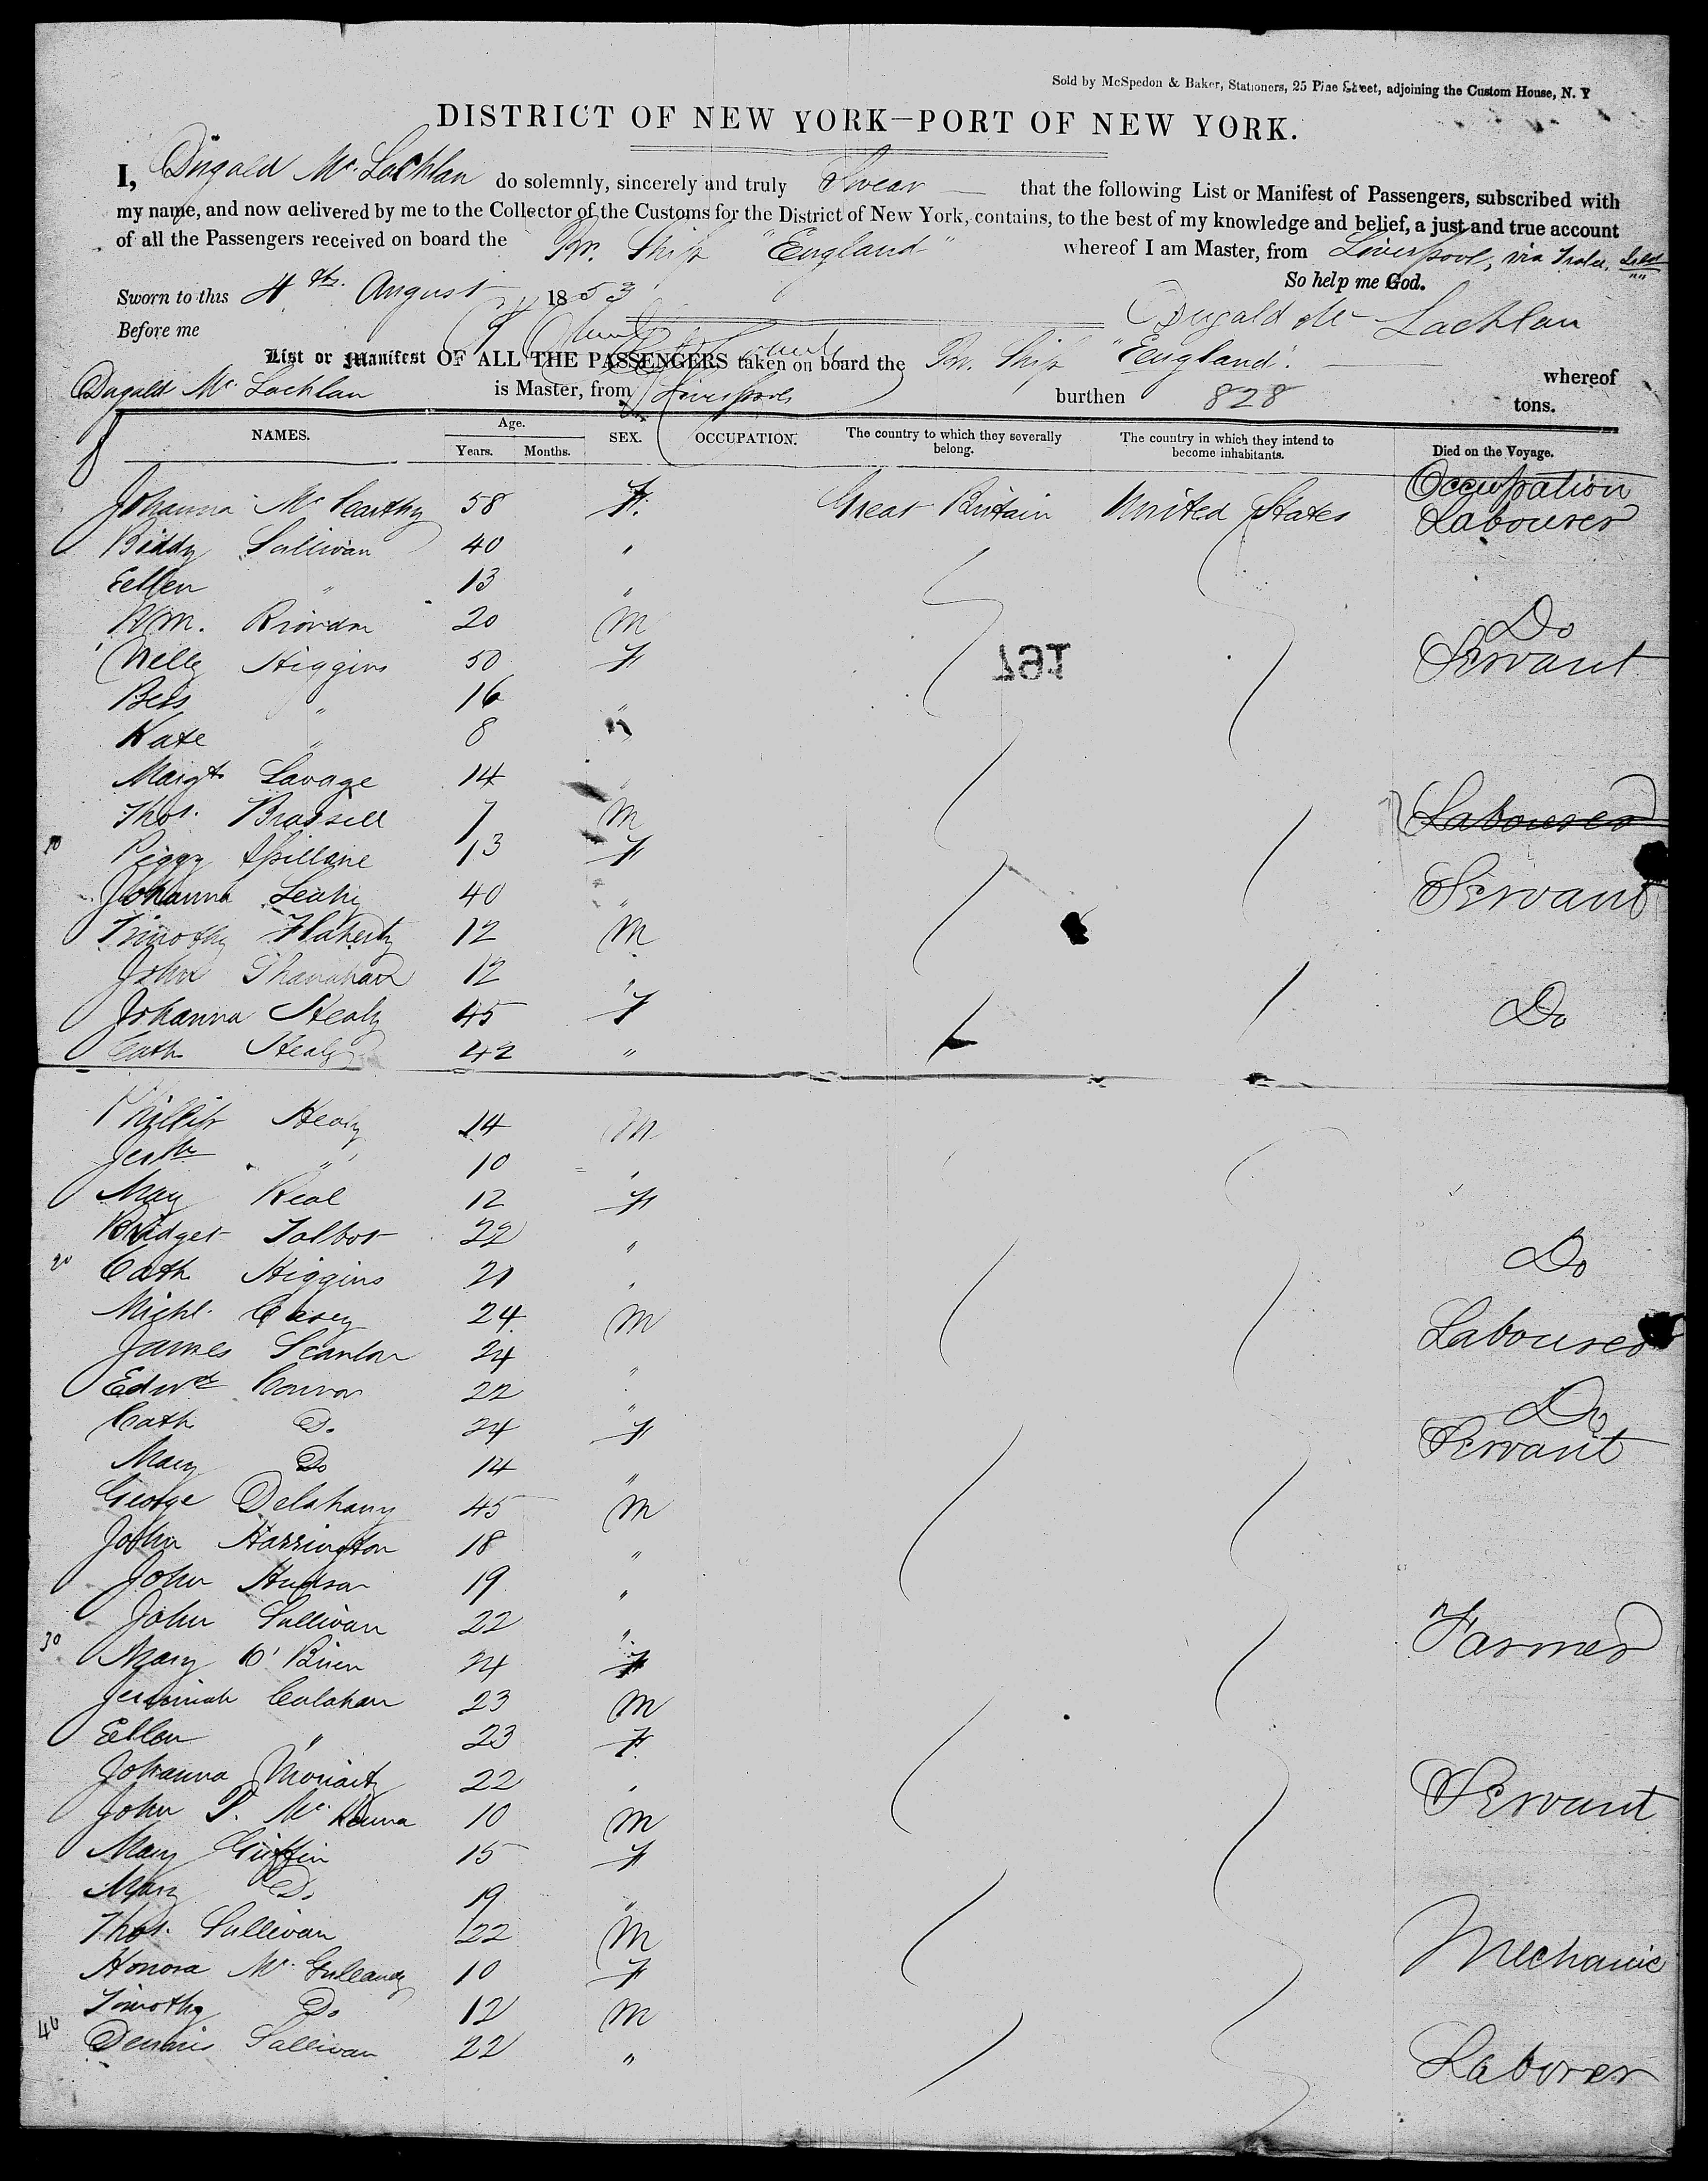 Sold by McSpedon & Baker, Stationers, 25 Pine Street, adjoining the Custom House, N. Y
DISTRICT OF NEW YORK—PORT OF NEW YORK.
I, Dugald Mc. Lachlan do solemnly, sincerely and truly Swear — that the following List or Manifest of Passengers, subscribed with
my name, and now delivered by me to the Collector of the Customs for the District of New York, contains, to the best of my knowledge and belief, a just and true account
of all the Passengers received on board the Br. Ship "England" whereof I am Master, from Liverpool, via Tralee,
So help me God.
Sworn to this 4th. August 1853
Dugald Mc Lachlan
Before me
List or Manifest OF ALL THE PASSENGERS taken on board the Br. Ship "England". whereof
Dugald Mc. Lachlan is Master, from Liverpool burthen 828 tons.
NAMES. Age. Years. Months. SEX. OCCUPATION. The country to which they severally belong. The country in which they intend to become inhabitants. Died on the Voyage.
Occupation
Johanna McCarthy 58 F. Great Britain United States Labourer
Biddy Sullivan 40 "
Eellen " 13 "
Wm. Riordn 20 M Do
Nelly Higgins 50 F Servant
191
Bess " 16 "
Kate " 8 "
Margt Savage 14 "
Thos. Brassell 7 M Labourer
10 Peggy Spillane 13 F
Johanna Leahy 40 " Servant
Timothy Flaherty 12 M
John Shanahan 12 "
Johanna Healy 45 F Do
Cath Healy 42 "
Phillip Healy 14 M
" 10 "
May Real 12 F
Bridget Talbot 22 " Do
20 Cath Higgins 21 "
Michl. Casey 24 M Labourer
James Scanlon 24 "
Edwd Connor 22 " Do
Cath Do 24 F Servant
Mary Do 14 "
George Delahany 45 M
John Harrington 18 "
John Hudson 19 "
John Sullivan 22 " Farmer
30 Mary O'Brien 24 F
Jeremiah Calahan 23 M
Eellen " 23 F
Johanna Moriarty 22 " Servant
John P. McKenna 10 M
Mary Griffin 15 F
Mary Do 19 "
Thos. Sullivan 22 M Mechanic
Honora Mc 10 F
Timothy Do 12 M
40 Dennis Sullivan 22 " Laborer